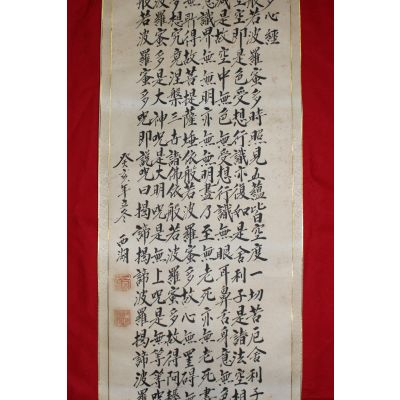 多心經
般若波羅蜜多時照見五蘊皆空度一切苦厄舍利子
空即是色受想行識亦復如是舍利子是諸法空相
滅是故空中無色無受想行識無眼耳鼻舌身意無色
意識界無無明亦無無明盡乃至無老死亦無老死盡
得故菩提薩埵依般若波羅蜜多故心無罣礙無
想究竟涅槃三世諸佛依般若波羅蜜多故得阿耨
羅蜜多是大神呪是大明呪是無上呪是無等等呪
般若波羅蜜多呪即說呪曰揭諦揭諦波羅揭諦波羅
癸亥年立冬 西湖